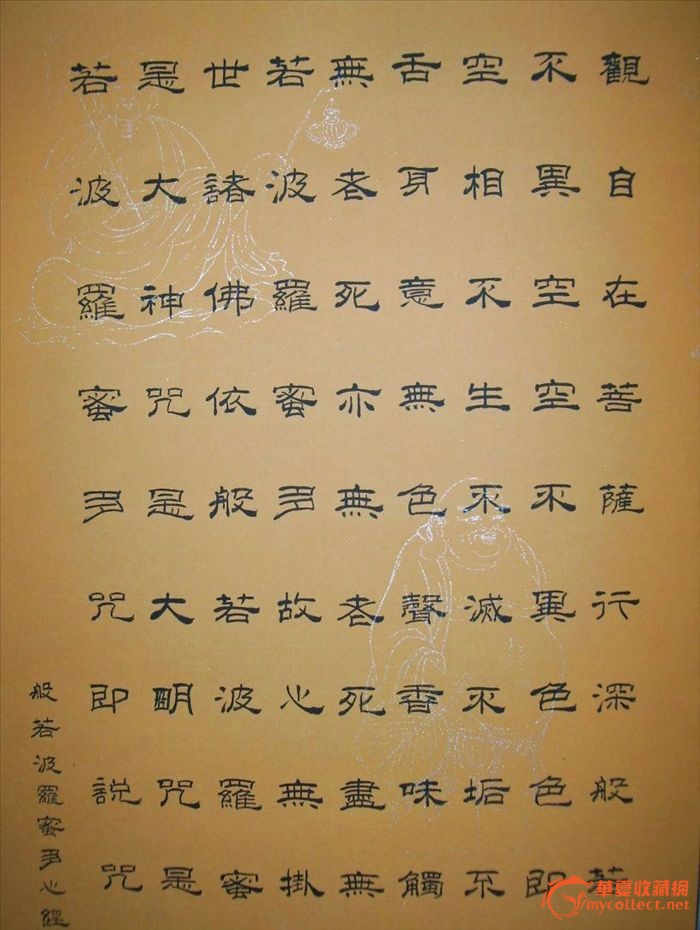 觀自在菩薩行深般若
不異空空不異色色即
空相不生不滅不垢不
舌身意無色聲香味觸
無老死亦無老死盡無
若波羅蜜多故心無掛
世諸佛依般若波羅蜜
是大神咒是大明咒是
若波羅蜜多咒即說咒
般若波羅蜜多心經
華夏收藏網
mycollect.net